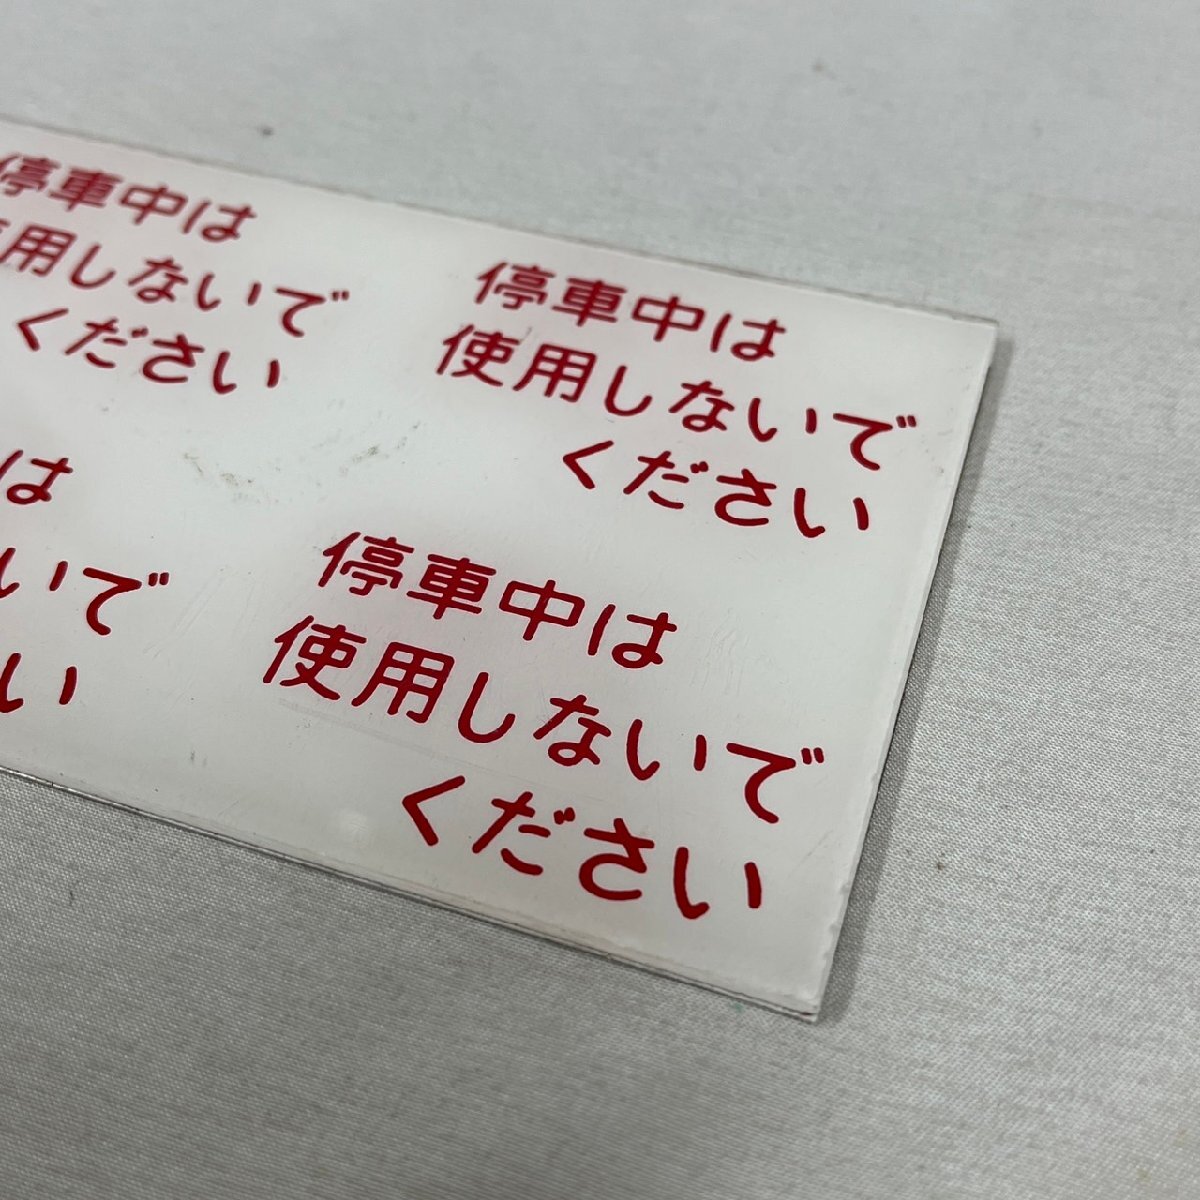 停車中は
使用しないで
ください
停車中は
使用しないで
ください
は
いで
い
停車中は
使用しないで
ください